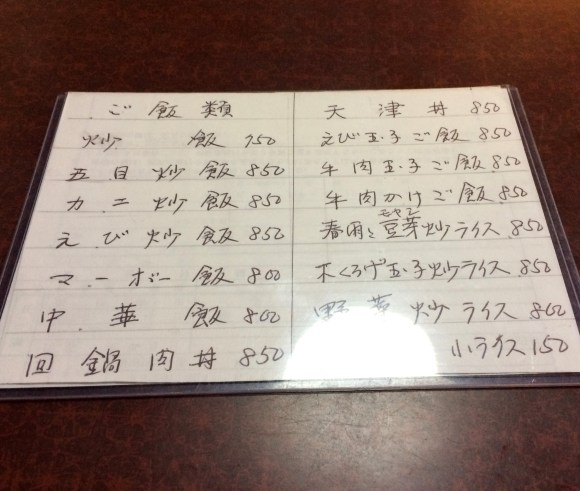 ご飯類
炒飯 750
五目炒飯 850
カニ炒飯 850
えび炒飯 850
マーボー飯 800
中華飯 800
回鍋肉丼 850
天津丼 850
えび玉子ご飯 850
牛肉玉子ご飯 850
牛肉かけご飯 850
モヤシ
春雨と豆芽炒ライス 850
木くらげ玉子炒ライス 850
野菜炒ライス 800
小ライス 150